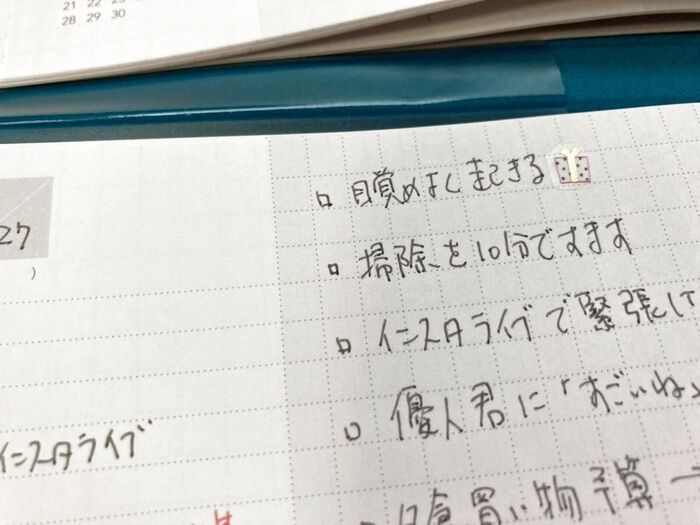 21 22 23
28 29 30
27
)
□ 目覚めよく起きる
□ 掃除を10分ですます
□ インスタライブで緊張して
□ 優人君に「すごいね」
インスタライブ
食買い物予算一